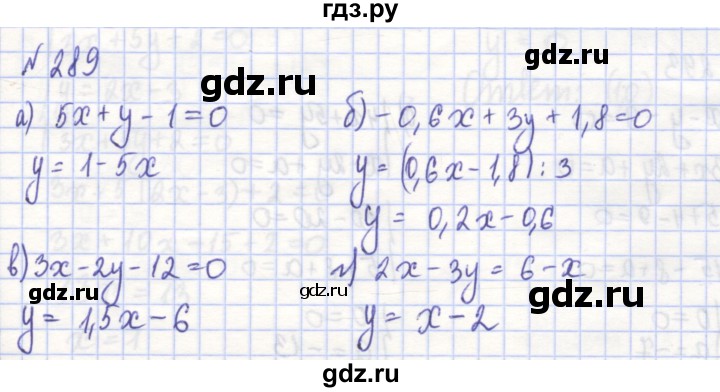 гдз.ру
№ 289
gdz.ru
gdz.ru
а) 5x + y - 1 = 0
y = 1 - 5x
б) - 0,6x + 3y + 1,8 = 0
y = (0,6x - 1,8) : 3
y = 0,2x - 0,6
gdz.ru
gdz.ru
в) 3x - 2y - 12 = 0
y = 1,5x - 6
г) 2x - 3y = 6 - x
y = x - 2
gdz.ru
gdz.ru
gdz.ru
gdz.ru
gdz.ru